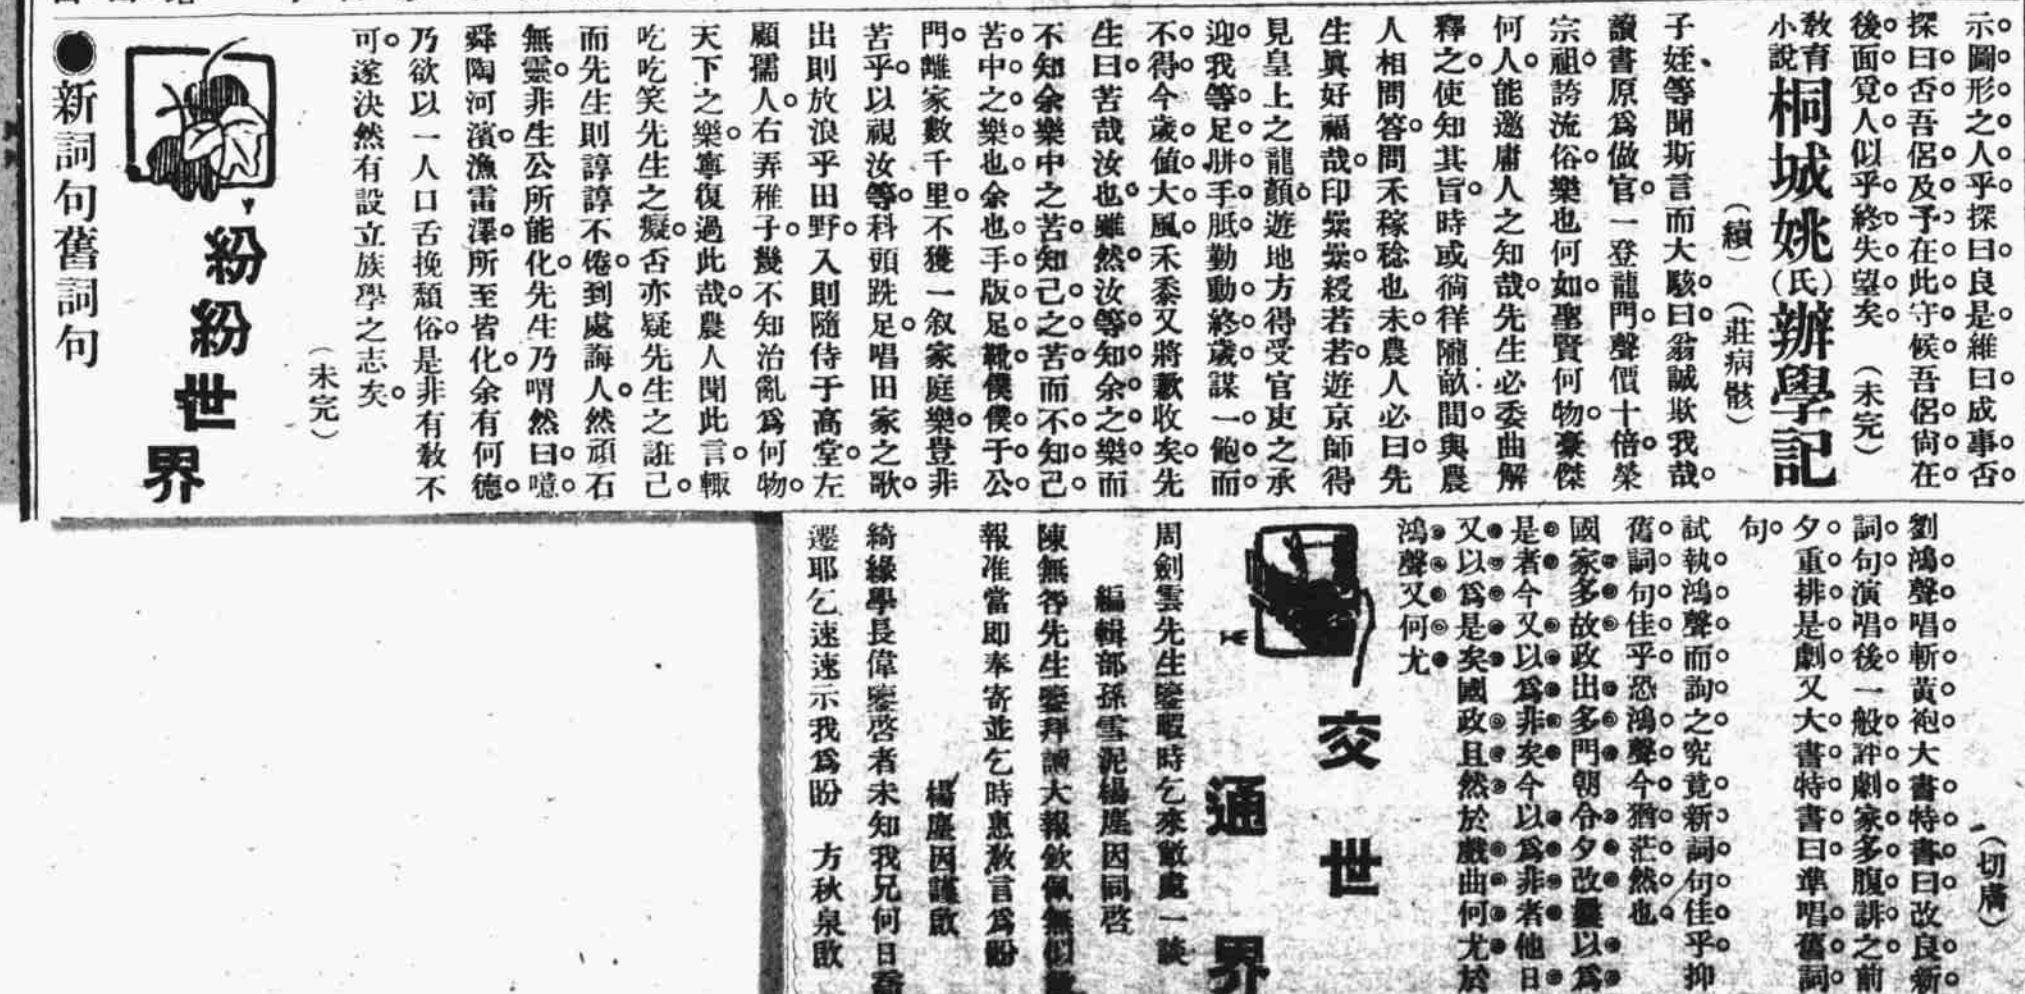 示圖形之人乎探曰良是維曰成事否
探曰否吾侶及予在此守候吾侶尙在
後面覓人似乎終失望矣（未完）
教育小說 桐城姚(氏)辦學記
（續）（莊病骸）
子姪等聞斯言而大駭曰翁誠欺我哉
讀書原爲做官一登龍門聲價十倍榮
宗祖誇流俗樂也何如聖賢何物豪傑
何人能邀庸人之知哉先生必委曲解
釋之使知其旨時或徜徉隴畝間與農
人相問答問禾稼稔也未農人必曰先
生眞好福哉印纍纍綬若若遊京師得
見皇上之龍顏遊地方得受官吏之承
迎我等足胼手胝勤動終歲謀一飽而
不得今歲值大風禾黍又將歉收矣先
生曰苦哉汝也雖然汝等知余之樂而
不知余樂中之苦知己之苦而不知己
苦中之樂也余也手版足靴僕僕于公
門離家數千里不獲一叙家庭樂豈非
苦乎以視汝等科頭跣足唱田家之歌
出則放浪乎田野入則隨侍于高堂左
顧孺人右弄稚子幾不知治亂爲何物
天下之樂寧復過此哉農人聞此言輙
吃吃笑先生之癡否亦疑先生之誑己
而先生則諄諄不倦到處誨人然頑石
無靈非生公所能化先生乃喟然曰噫
舜陶河濱漁雷澤所至皆化余有何德
乃欲以一人口舌挽頽俗是非有敎不
可遂決然有設立族學之志矣
（未完）
紛紛世界
●新詞句舊詞句
（切膚）
劉鴻聲唱斬黃袍大書特書曰改良新
詞句演唱後一般評劇家多腹誹之前
夕重排是劇又大書特書曰準唱舊詞
句
試執鴻聲而詢之究竟新詞句佳乎抑
舊詞句佳乎恐鴻聲今猶茫然也
國家多故政出多門朝令夕改曩以爲
是者今又以爲非矣今以爲非者他日
又以爲是矣國政且然於戲曲何尤於
鴻聲又何尤
交世通界
周劍雲先生鑒暇時乞來敝處一談
編輯部孫雪泥楊塵因同啓
陳無咎先生鑒拜讀大報欽佩無似
報准當即奉寄並乞時惠敎言爲盼
楊塵因謹啟
綺緣學長偉鑒啓者未知我兄何日喬
遷耶乞速速示我爲盼 方秋泉啟